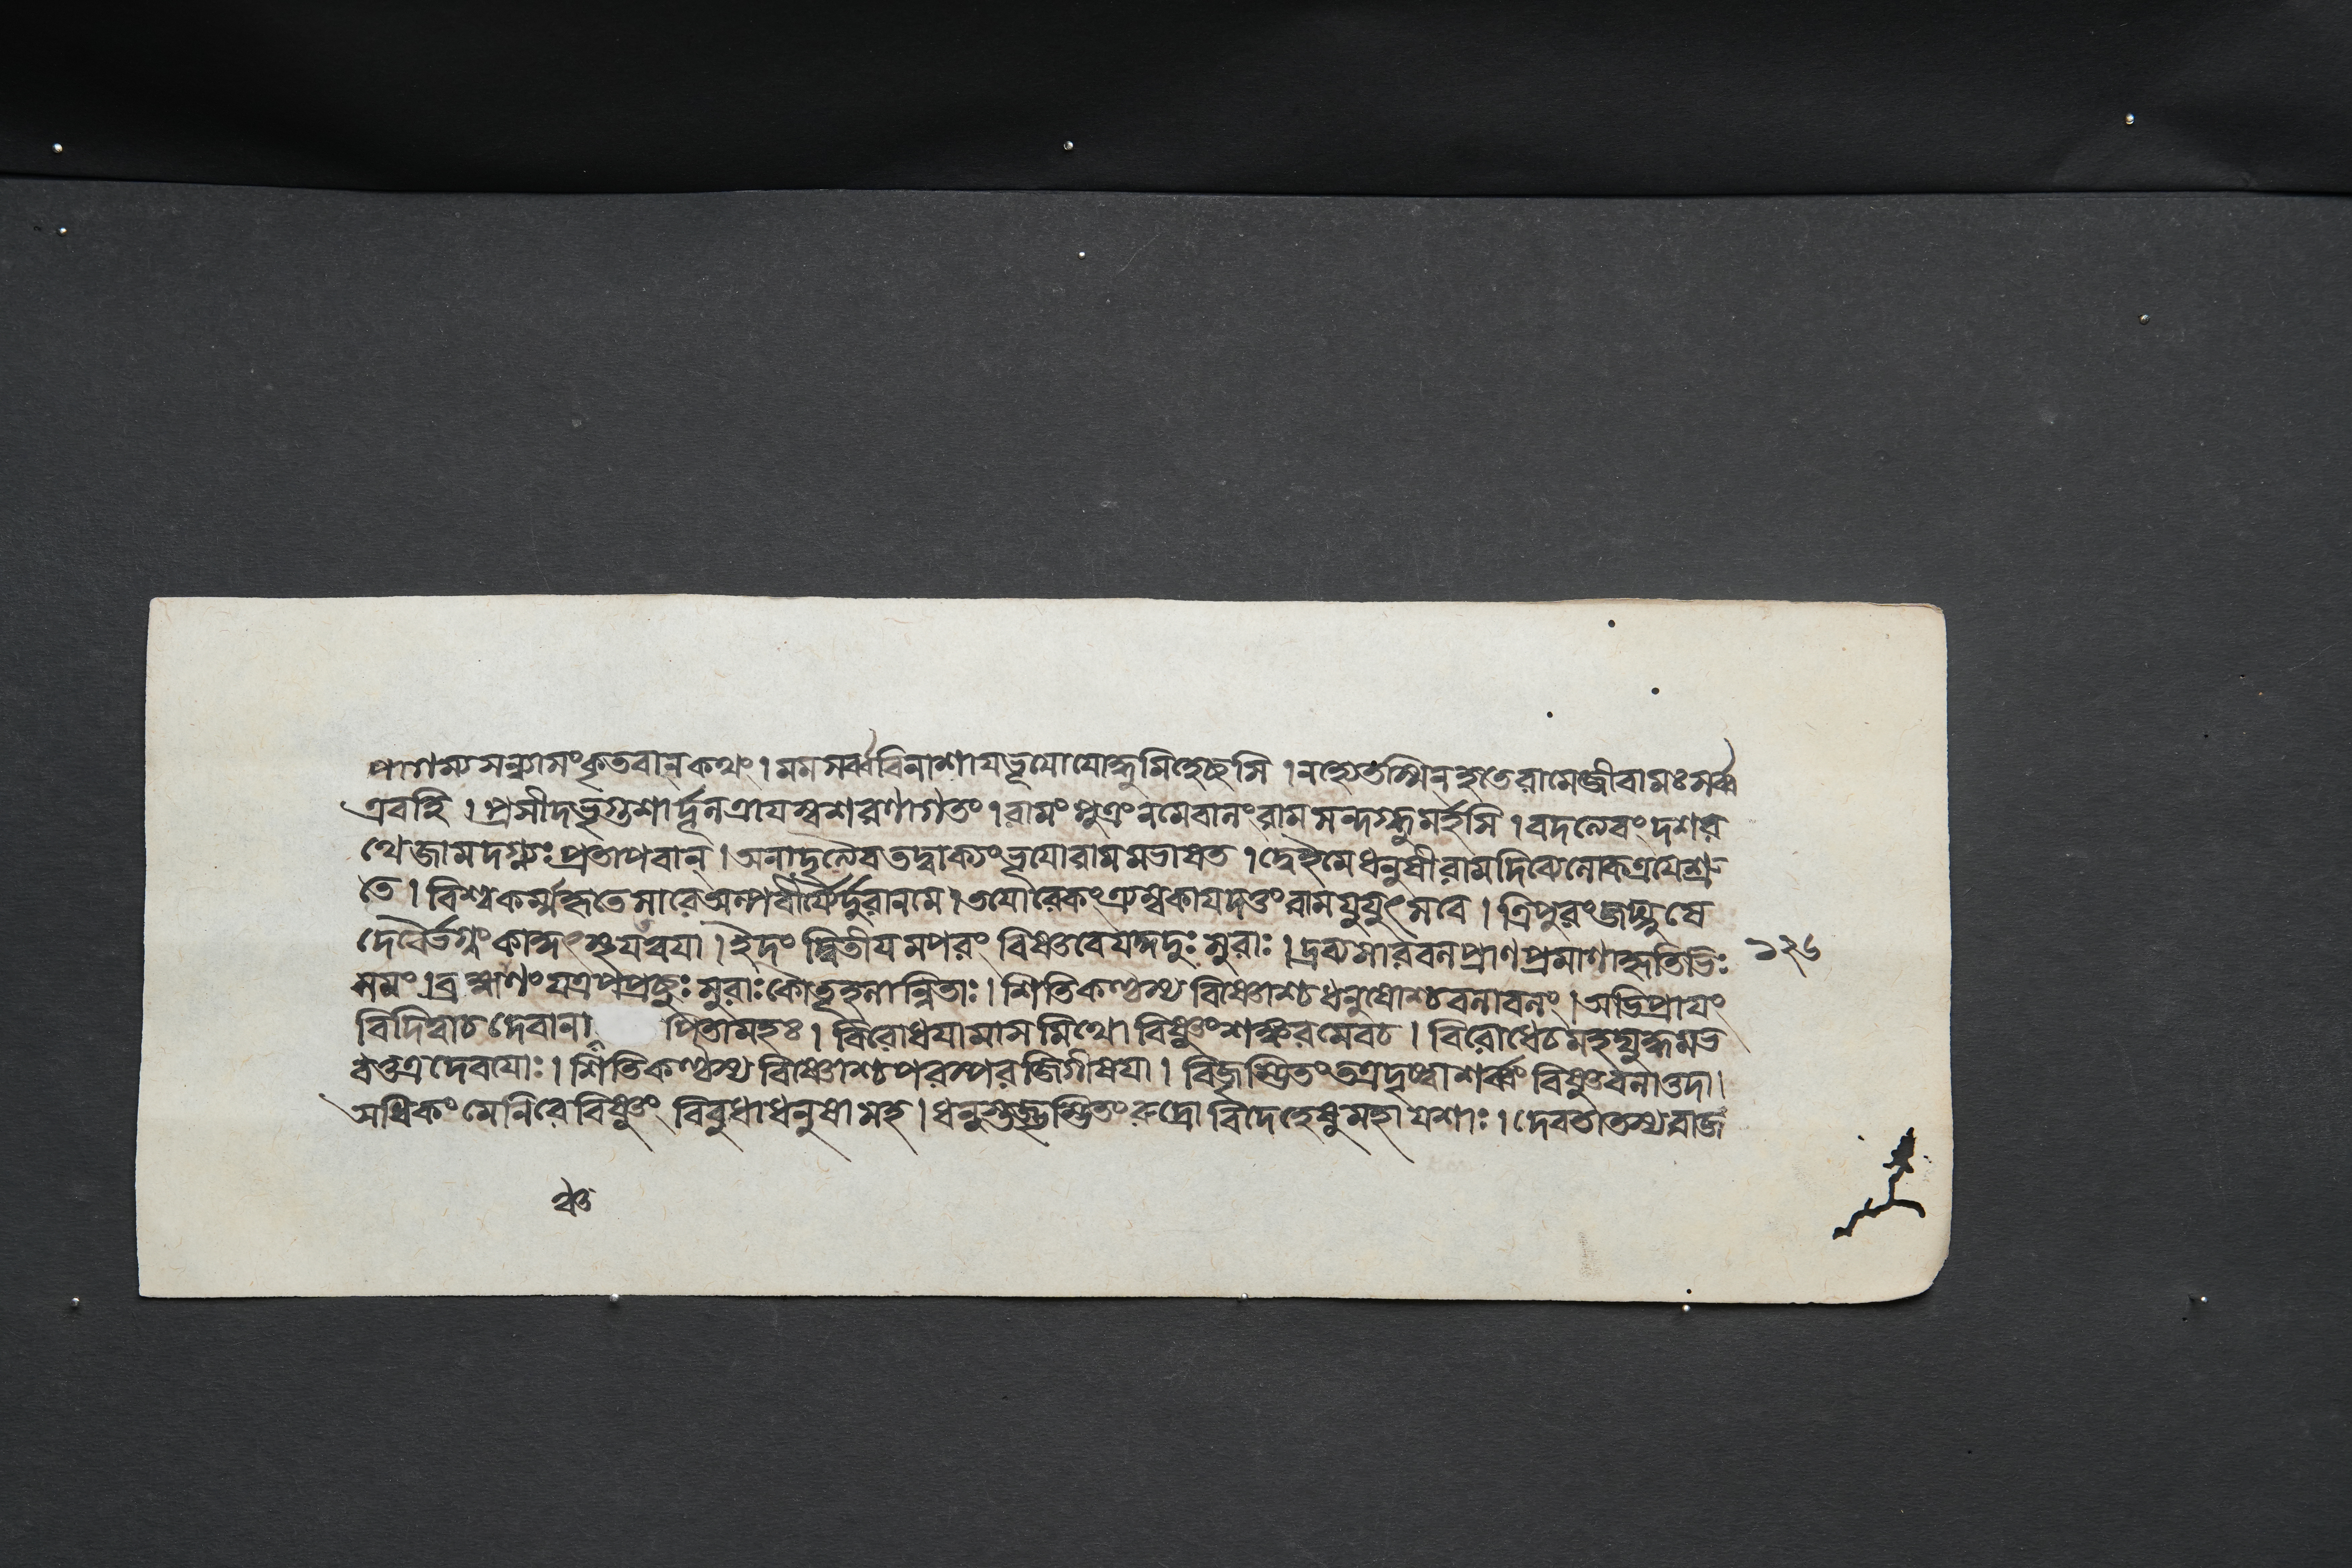 কৃতবান্ কথং । মম সর্ব্ববিনাশায ভূযো যোদ্ধুমিহেচ্ছসি । নহ্যেতস্মিন্ হতে রামে জীবামঃ সর্ব্ব
এবহি । প্রসীদ ভৃগুশার্দ্দূল ত্রাযস্ব শরণাগতং । রামং পুত্রং ন মে বালং রাম সন্দগ্ধুমর্হসি । বদত্যেবং দশর
থে জামদগ্ন্যঃ প্রতাপবান্ । অনাদৃত্যৈব তদ্বাক্যং ভূযো রামমভাষত । দ্বেইমে ধনুষী রাম দিব্যে লোকত্রযে শ্রু
তে । বিশ্বকর্ম্মকৃতে সারে অল্পবীর্যৈর্দুরানমে । তযোরেকং ত্র্যম্বকায দত্তং রাম যুযুৎসবে । ত্রিপুরং জঘ্নুষে
দেবৈর্ভগ্নং কাকুৎস্থ যত্ত্বযা । ইদং দ্বিতীযমপরং বিষ্ণবে যদ্দদুঃ সুরাঃ । দ্রব্যসারবলপ্রাণপ্রমাণাকৃতিভিঃ
১২৬
সমং । ব্রহ্মাণং যত্র পপ্রচ্ছুঃ সুরাঃ কৌতূহলান্বিতাঃ । শিতিকণ্ঠস্য বিষ্ণোশ্চ ধনুষোশ্চ বলাবলং । অভিপ্রাযং
বিদিত্বাচ দেবানাং পিতামহঃ । বিরোধযামাস মিথো বিষ্ণুং শঙ্করমেবচ । বিরোধেচ মহদ্যুদ্ধমভ
বত্তত্র দেবযোঃ । শিতিকণ্ঠস্য বিষ্ণোশ্চ পরস্পরজিগীষযা । বিজৃম্ভিতং তত্র দৃষ্ট্বা শর্ব্বং বিষ্ণুবলাত্তদা ।
অধিকং মেনিরে বিষ্ণুং বিবুধা ধনুষা সহ । ধনুস্তজ্জৃম্ভিতং রুদ্রো বিদেহেষু মহাযশাঃ । দেবরাতস্য রাজ